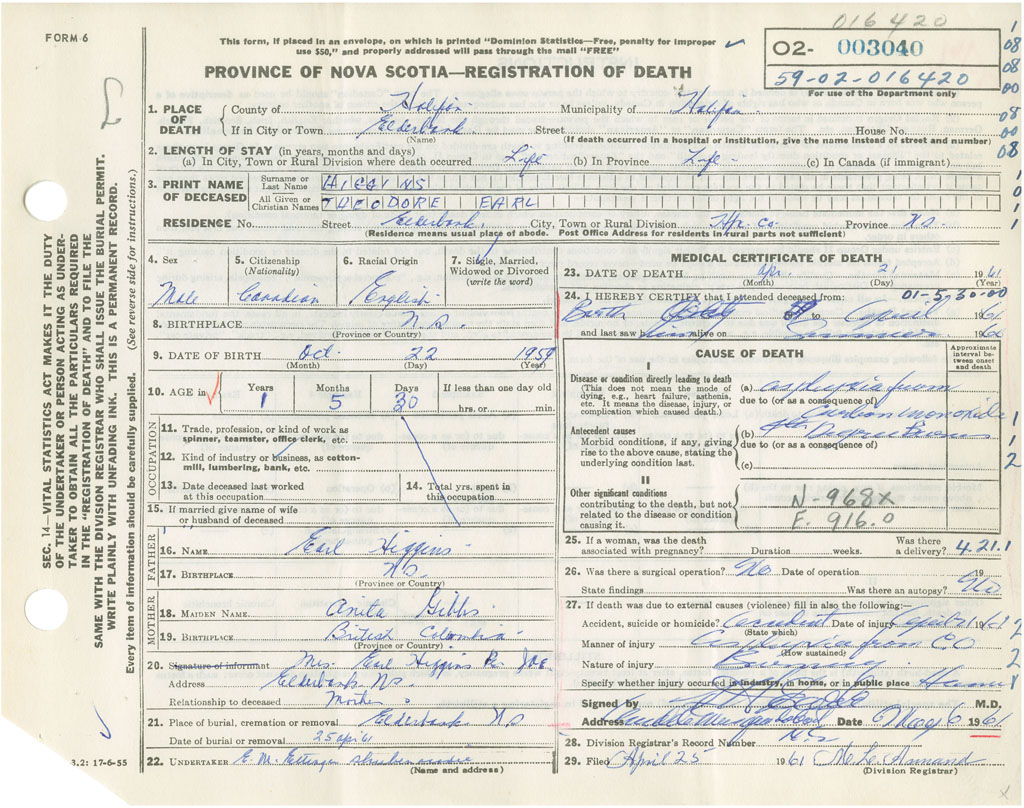 016420
FORM 6
This form, if placed in an envelope, on which is printed "Dominion Statistics—Free, penalty for improper use $50," and properly addressed will pass through the mail "FREE"
02- 003040
59-02-016420
For use of the Department only
PROVINCE OF NOVA SCOTIA—REGISTRATION OF DEATH
1. PLACE OF DEATH
County of Halifax Municipality of Halifax
If in City or Town Elderbank Street House No.
(Name) (If death occurred in a hospital or institution, give the name instead of street and number)
2. LENGTH OF STAY (in years, months and days)
(a) In City, Town or Rural Division where death occurred Life (b) In Province Life (c) In Canada (if immigrant)
3. PRINT NAME OF DECEASED
Surname or Last Name HIGGINS
All Given or Christian Names THEODORE EARL
RESIDENCE No. Street Elderbank, City, Town or Rural Division Hfx. Co. Province N.S.
(Residence means usual place of abode. Post Office Address for residents in rural parts not sufficient)
4. Sex Male
5. Citizenship (Nationality) Canadian
6. Racial Origin English
7. Single, Married, Widowed or Divorced (write the word)
8. BIRTHPLACE N.S.
(Province or Country)
9. DATE OF BIRTH Oct. 22 1959
(Month) (Day) (Year)
10. AGE in Years 1 Months 5 Days 30 If less than one day old hrs. or min.
OCCUPATION
11. Trade, profession, or kind of work as spinner, teamster, office clerk, etc.
12. Kind of industry or business, as cotton-mill, lumbering, bank, etc.
13. Date deceased last worked at this occupation
14. Total yrs. spent in this occupation
15. If married give name of wife or husband of deceased
FATHER
16. NAME Earl Higgins
17. BIRTHPLACE N.S.
(Province or Country)
MOTHER
18. MAIDEN NAME Anita Gibbs
19. BIRTHPLACE British Columbia
(Province or Country)
20. Signature of informant Mrs. Earl Higgins Per
Address Elderbank N.S.
Relationship to deceased Mother
21. Place of burial, cremation or removal Elderbank N.S
Date of burial or removal 25 apr 61
22. UNDERTAKER E. M.
(Name and address)
MEDICAL CERTIFICATE OF DEATH
23. DATE OF DEATH Apr. 21 1961
(Month) (Day) (Year)
24. I HEREBY CERTIFY that I attended deceased from: 01-5,30.00
Birth to April 1961
and last saw him alive on 1960
CAUSE OF DEATH
Approximate interval between onset and death
I
Disease or condition directly leading to death
(This does not mean the mode of dying, e.g., heart failure, asthenia, etc. It means the disease, injury, or complication which caused death.)
(a) asphyxia from
due to (or as a consequence of)
carbon monoxide
Antecedent causes
Morbid conditions, if any, giving rise to the above cause, stating the underlying condition last.
(b) 4th Degree Burns
due to (or as a consequence of)
(c)
II
Other significant conditions
contributing to the death, but not related to the disease or condition causing it.
N-968X
E. 916.0
25. If a woman, was the death associated with pregnancy? Duration weeks. Was there a delivery? 4.21.1
26. Was there a surgical operation? No Date of operation 19
State findings Was there an autopsy? No
27. If death was due to external causes (violence) fill in also the following:—
Accident, suicide or homicide? Accident Date of injury April 21 1961
(State which)
Manner of injury Asphyxia from CO
(How sustained)
Nature of injury Burning
Specify whether injury occurred in industry, in home, or in public place Home
Signed by M.D.
Address Date 6 May 1961
N.S
28. Division Registrar's Record Number
29. Filed April 25 1961
(Division Registrar)
SEC. 14—VITAL STATISTICS ACT MAKES IT THE DUTY OF THE UNDERTAKER OR PERSON ACTING AS UNDERTAKER TO OBTAIN ALL THE PARTICULARS REQUIRED IN THE "REGISTRATION OF DEATH" AND TO FILE THE SAME WITH THE DIVISION REGISTRAR WHO SHALL ISSUE THE BURIAL PERMIT.
WRITE PLAINLY WITH UNFADING INK. THIS IS A PERMANENT RECORD.
Every item of information should be carefully supplied. (See reverse side for instructions.)
3.2: 17-6-55